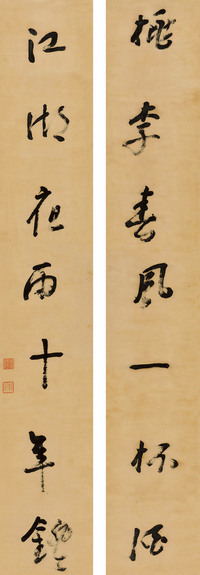 桃李春風一杯酒
江湖夜雨十年鐙